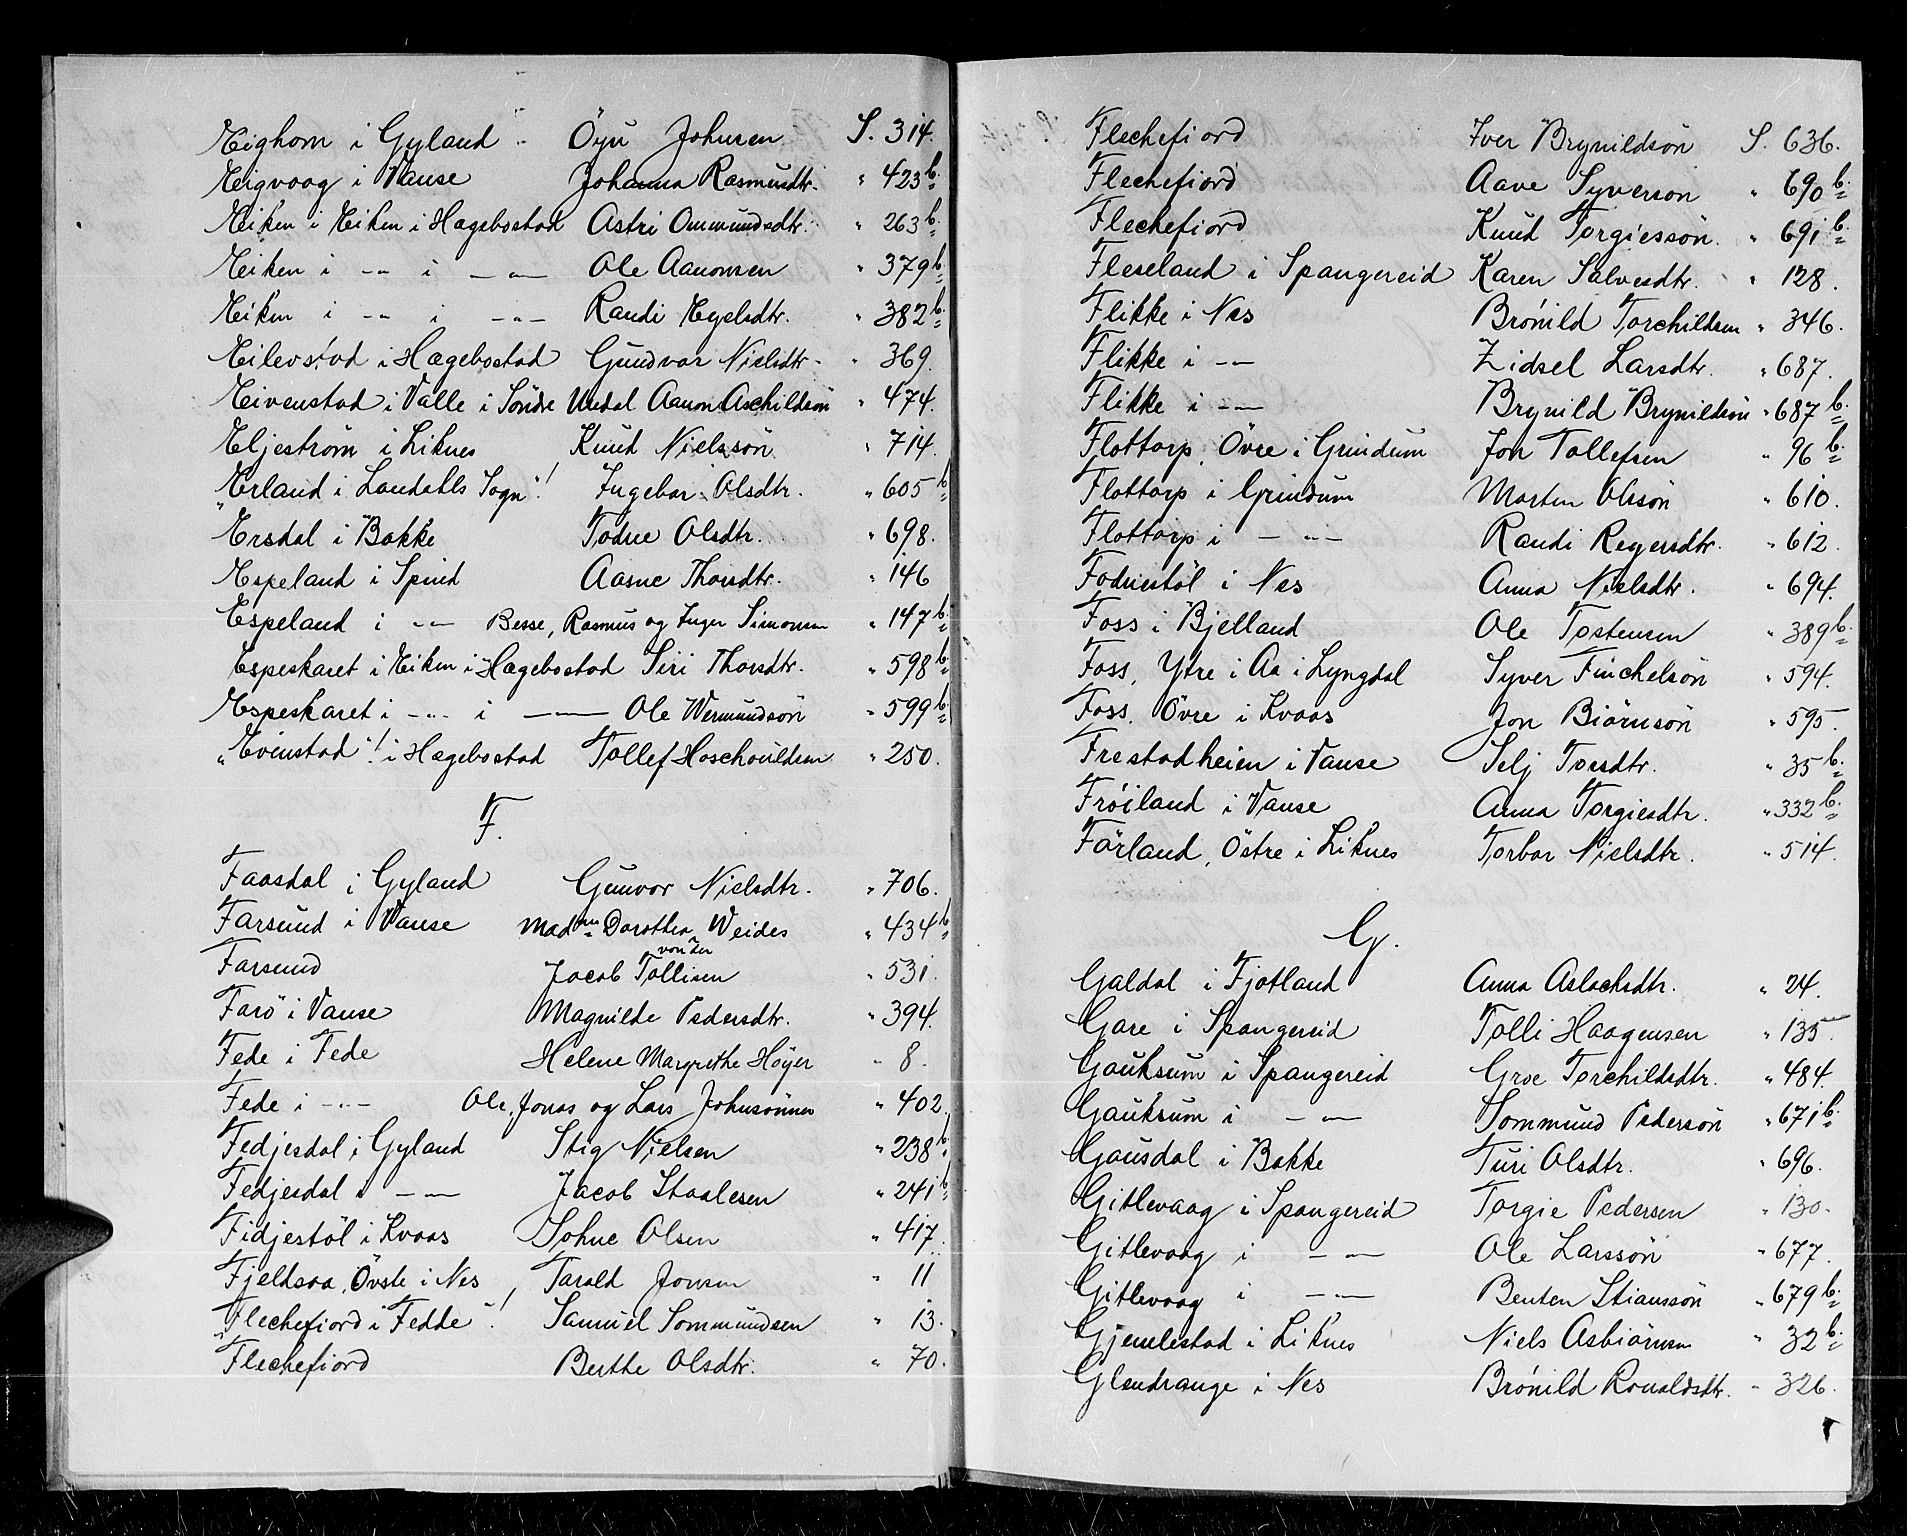 Eighom i Gyland .. Öyu Johnsen S. 314.
Eigvaag i Vanse Johanna Rasmusdtr. " 423 b.
Eiken i Eiken i Hægebostad Astri Ommundsdtr. " 263 b.
Eiken i -"- i -"- Ole Aanonsen " 379 b.
Eiken i -"- i -"- Randi Egelsdtr. " 382 b.
Eilevstad i Hægebostad Gundvor Nielsdtr. " 369.
Eivenstad i Valle i Söndre Undal Aanon Aschildsön " 474.
Eljeström i Liknes Knud Nielssön " 714.
"Erland i Landahls Sogn"! Ingebor Olsdtr. " 605 b
Ersdal i Bakke Todne Olsdtr. " 698.
Espeland i Spind Aasne Thorsdtr. " 146
Espeland i -"- Besse, Rasmus og Inger Simonsen " 147 b.
Espeskaret i Eiken i Hægebostad Siri Thorsdtr. " 598 b.
Espeskaret i -"- i -"- Ole Wermundsön " 599 b.
"Evinstad"! i Hægebostad Tollef Hoschouldsen " 250.
F.
Faasdal i Gyland Gunvor Nielsdtr. " 706.
Farsund i Vanse Madm Dorothea Weides " 434 b
Farsund Jacob von der Tollisen " 531.
Farö i Vanse Magnilde Pedersdtr. " 394.
Fede i Fede Helene Margrethe Höyer " 8.
Fede i -"- Ole, Jonas og Lars Johnsönner " 402.
Fedjesdal i Gyland Stig Nielsen " 238 b.
Fedjesdal i -"- Jacob Staalesen " 241 b
Fidjestöl i Kvaas Sohne Olsen " 417.
Fjeldsaa, Övste i Nes, Tarald Jonsen " 11
"Flechefiord i Fedde"! Samuel Sommundsen " 13.
Flechefiord Berthe Olsdtr. " 70.
Flechefiord Iver Brynildsön S. 636.
Flechefiord Aave Syversön " 690 b.
Flechefiord Knud Torgiessön. " 691 b.
Fleseland i Spangereid Karen Salvesdtr. " 128.
Flikke i Nes Brönild Torchildsen " 346.
Flikke i -"- Zidsel Larsdtr. " 687.
Flikke i -"- Brynild Brynildsön " 687 b.
Flottorp, Övre i Grindum Jon Tollefsen " 96 b.
Flottorp i Grindum Morten Olssön " 610.
Flottorp i -"- Randi Regersdtr. " 612.
Fodnestöl i Nes Anna Nielsdtr. " 694.
Foss i Bjelland Ole Tostensen " 389 b.
Foss, Ytre i Aa i Lyngdal Syver Finchelsön " 594.
Foss, Övre i Kvaas Jon Biörnsön " 595.
Frestadheien i Vanse Selj Torsdtr. " 35 b.
Fröiland i Vanse Anna Torgiesdtr. " 332 b.
Förland, Östre i Liknes Torbor Nielsdtr. " 514.
G.
Galdal i Fjotland Anna Aslachsdtr. " 24.
Gare i Spangereid Tolli Haagensen " 135
Gauksum i Spangereid Groe Torchildsdtr. " 484.
Gauksum i -"- Sommund Pedersön " 671 b.
Gausdal i Bakke Turi Olsdtr. " 696.
Gitlevaag i Spangereid Torgie Pedersen " 130.
Gitlevaag i -"- Ole Larssön " 677.
Gitlevaag i -"- Benten Stianssön " 679 b.
Gjemlestad i Liknes Niels Asbiörnsen " 32 b.
Glendrange i Nes Brönild Ronaldsdtr. " 326.